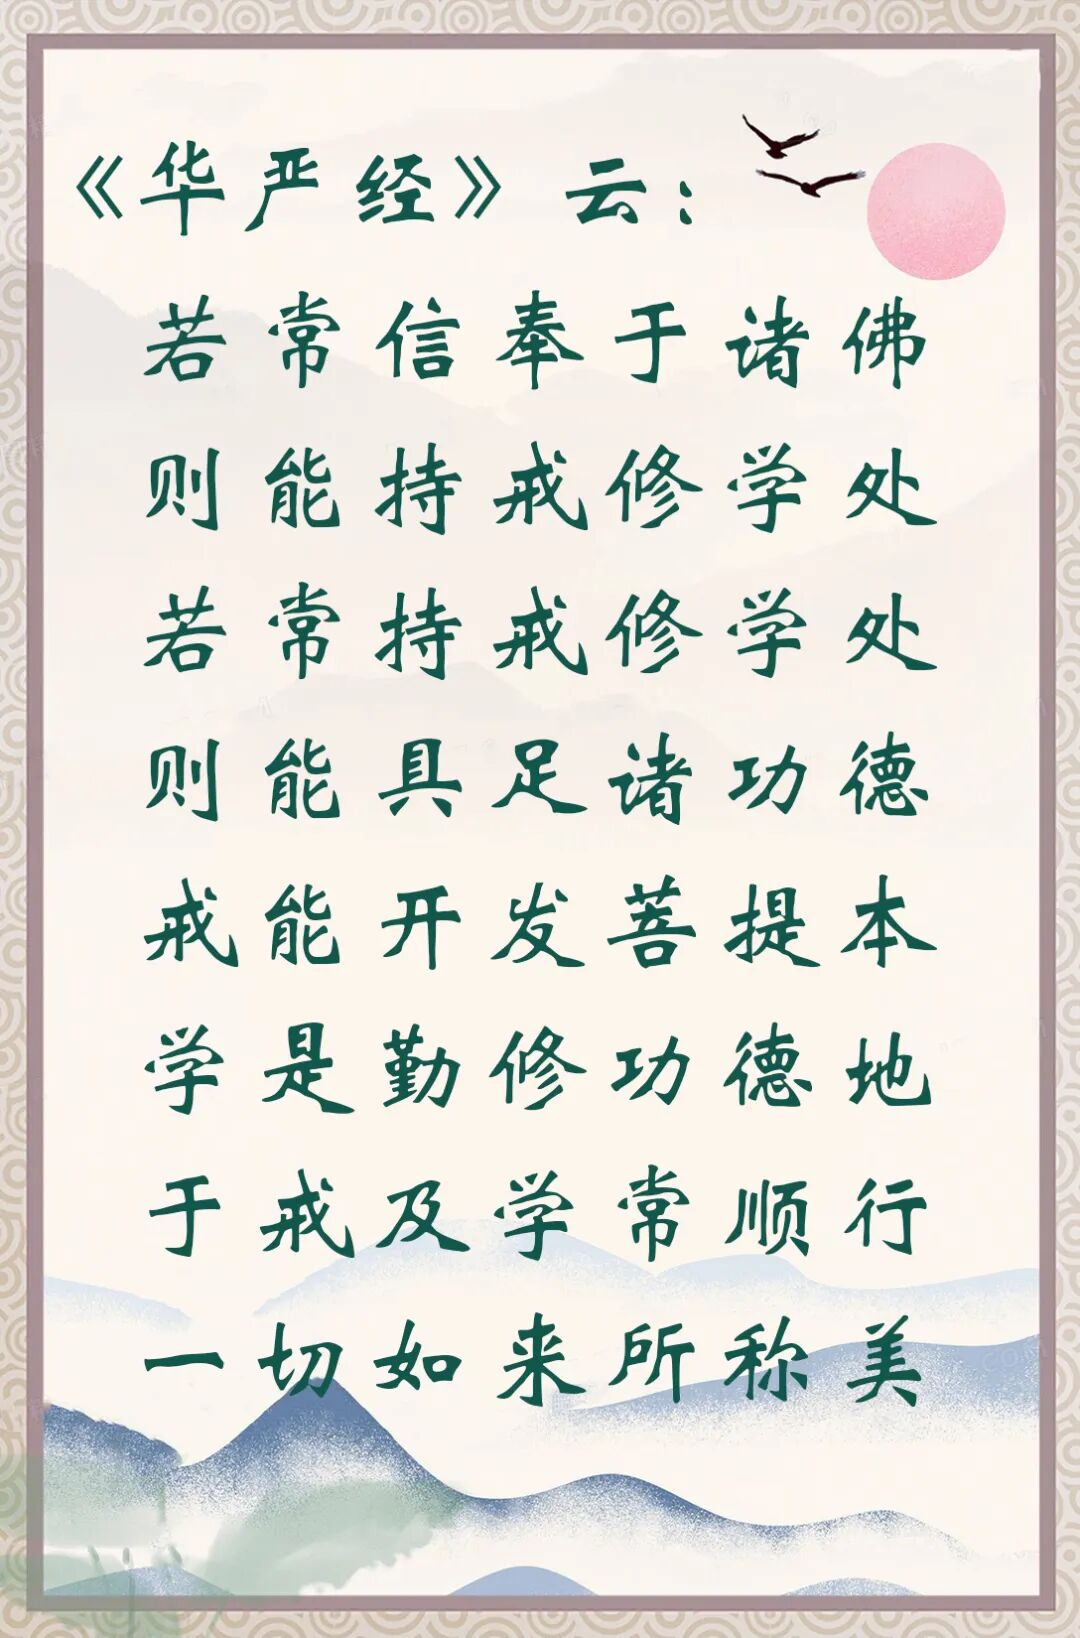 《华严经》云：
若常信奉于诸佛
则能持戒修学处
若常持戒修学处
则能具足诸功德
戒能开发菩提本
学是勤修功德地
于戒及学常顺行
一切如来所称美